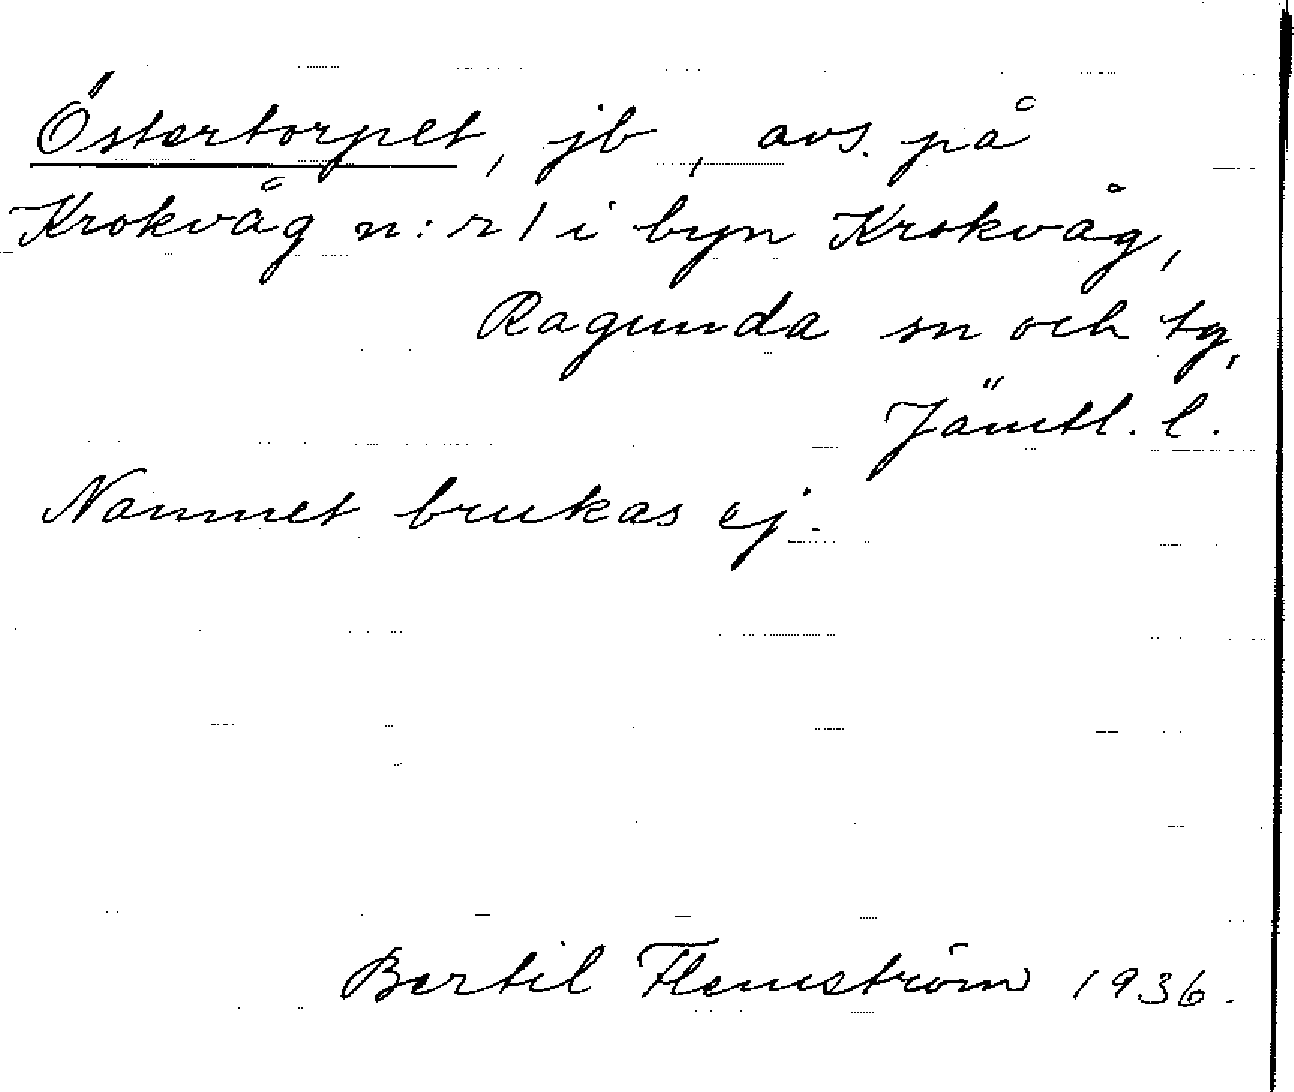 Östertorpet, jb, avs. på
Krokvåg n:r 1 i byn Krokvåg,
Ragunda sn och tg,
Jämtl. l.
Namnet brukas ej.
Bertil Flemström 1936.